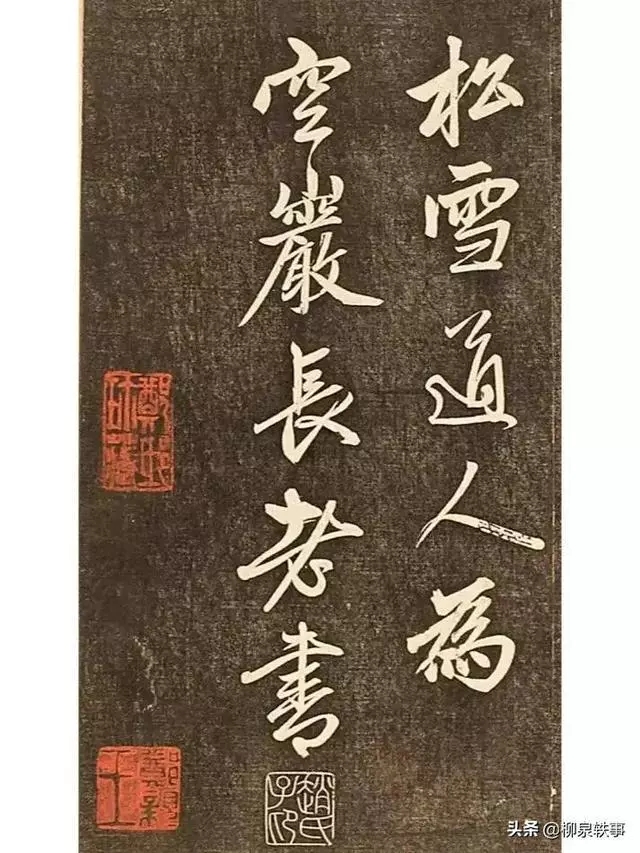 松雪道人為
空巖長老書
趙氏子印
头条 @柳泉轶事